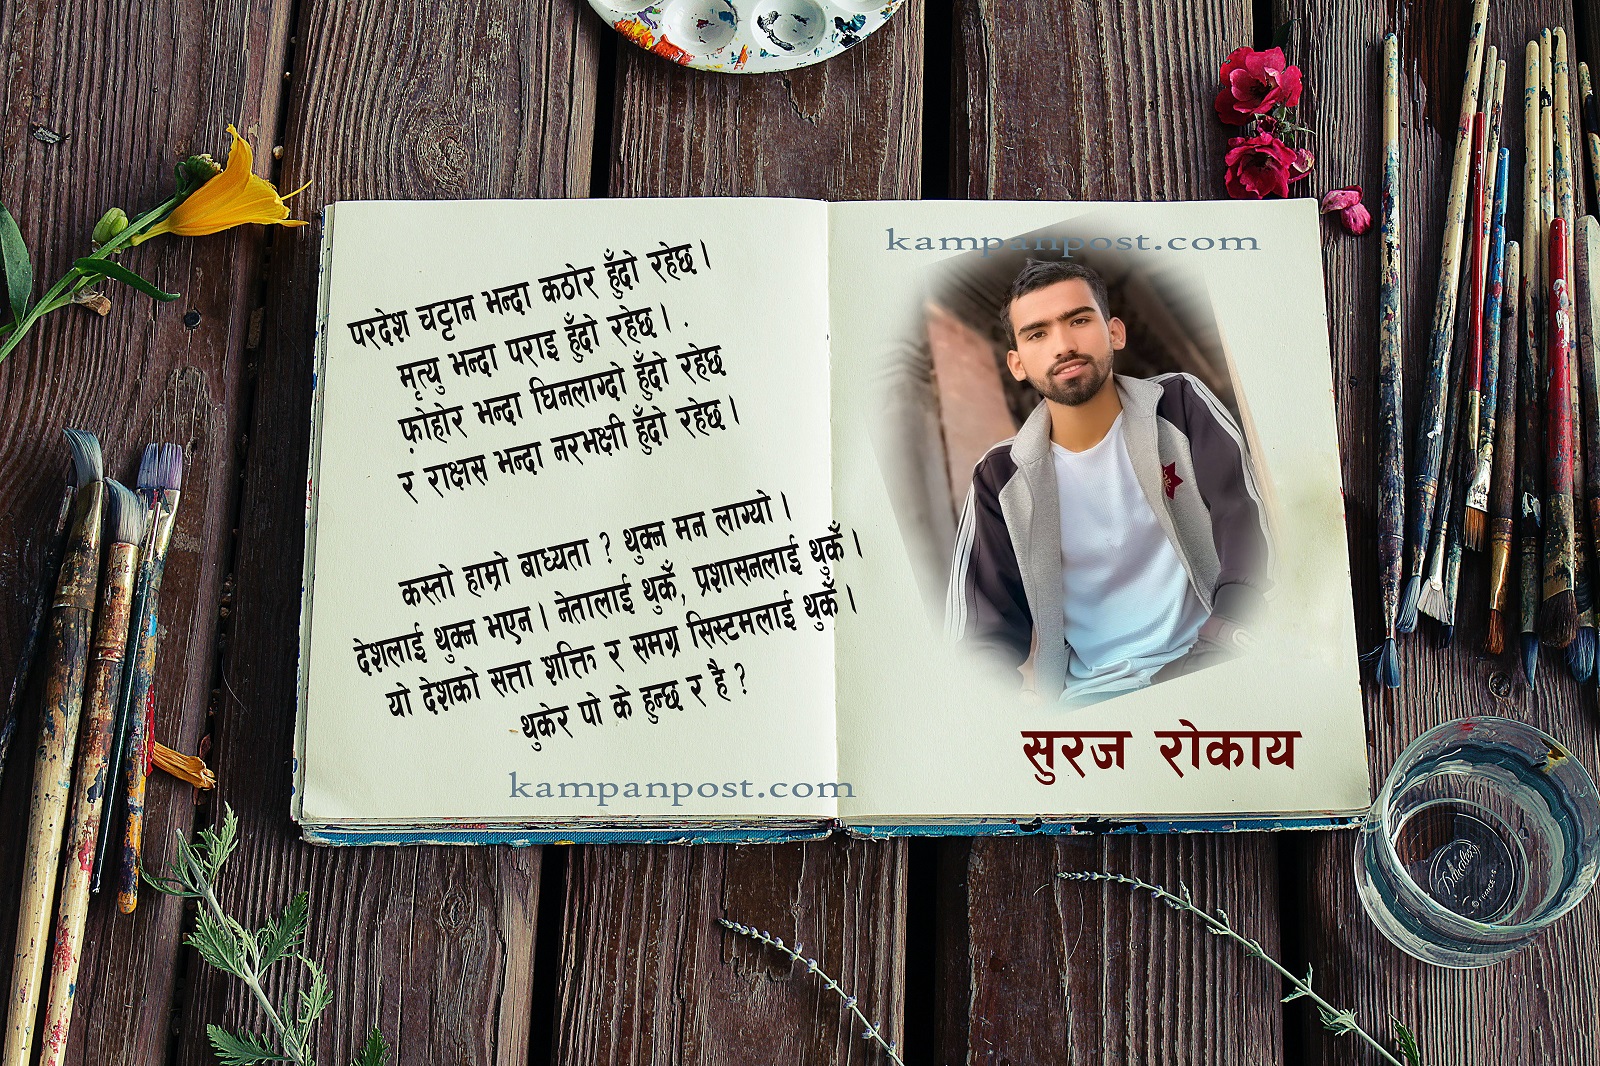 परदेश चट्टान भन्दा कठोर हुँदो रहेछ।
मृत्यु भन्दा पराइ हुँदो रहेछ।
फ़ोहोर भन्दा घिनलाग्दो हुँदो रहेछ
र राक्षस भन्दा नरभक्षी हुँदो रहेछ।
कस्तो हाम्रो बाध्यता ? थुक्न मन लाग्यो ।
देशलाई थुक्न भएन। नेतालाई थुकेँ, प्रशासनलाई थुकेँ ।
यो देशको सत्ता शक्ति र समग्र सिस्टमलाई थुकेँ ।
थुकेर पो के हुन्छ र है ?
kampanpost.com
kampanpost.com
सुरज रोकाय